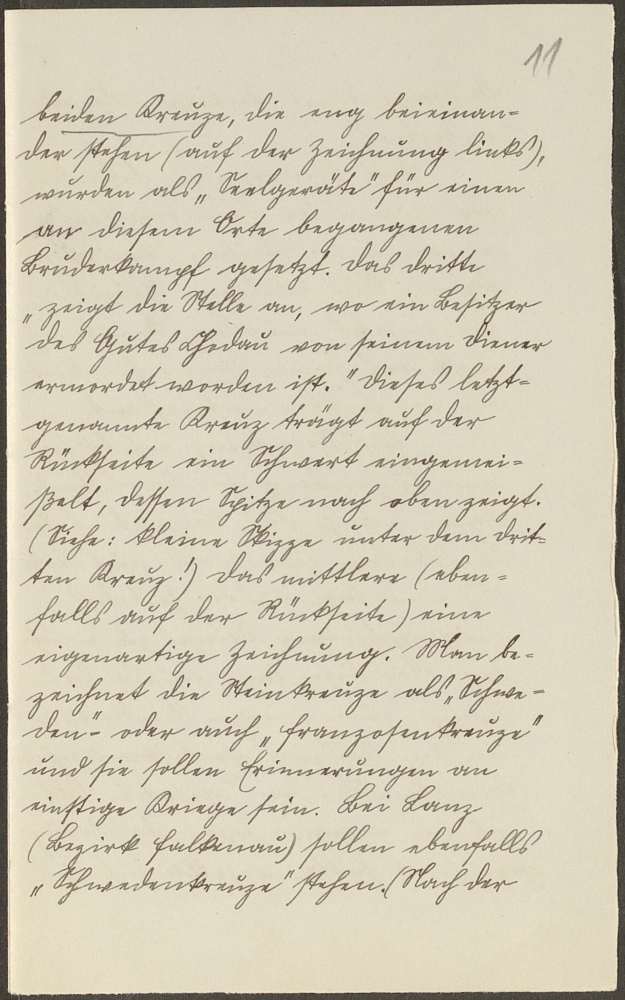 11
beiden Kreuze, die eng beieinan-
der stehen (auf der Zeichnung links),
wurden als „Seelgeräte" für einen
an diesem Orte begangenen
Bruderkampf gesetzt. Das dritte
„zeigt die Stelle an, wo ein Besitzer
des Gutes Chodau von seinem Diener
ermordet worden ist." Dieses letzt-
genannte Kreuz trägt auf der
Rückseite ein Schwert eingemei-
ßelt, dessen Spitze nach oben zeigt.
(Siehe: kleine Skizze unter dem drit-
ten Kreuz!) Das mittlere (eben-
falls auf der Rückseite) eine
eigenartige Zeichnung. Man be-
zeichnet die Steinkreuze als „Schwe-
den"- oder auch „Franzosenkreuze"
und sie sollen Erinnerungen an
einstige Kriege sein. Bei Lanz
(Bezirk Falkenau) sollen ebenfalls
„Schwedenkreuze" stehen. (Nach der